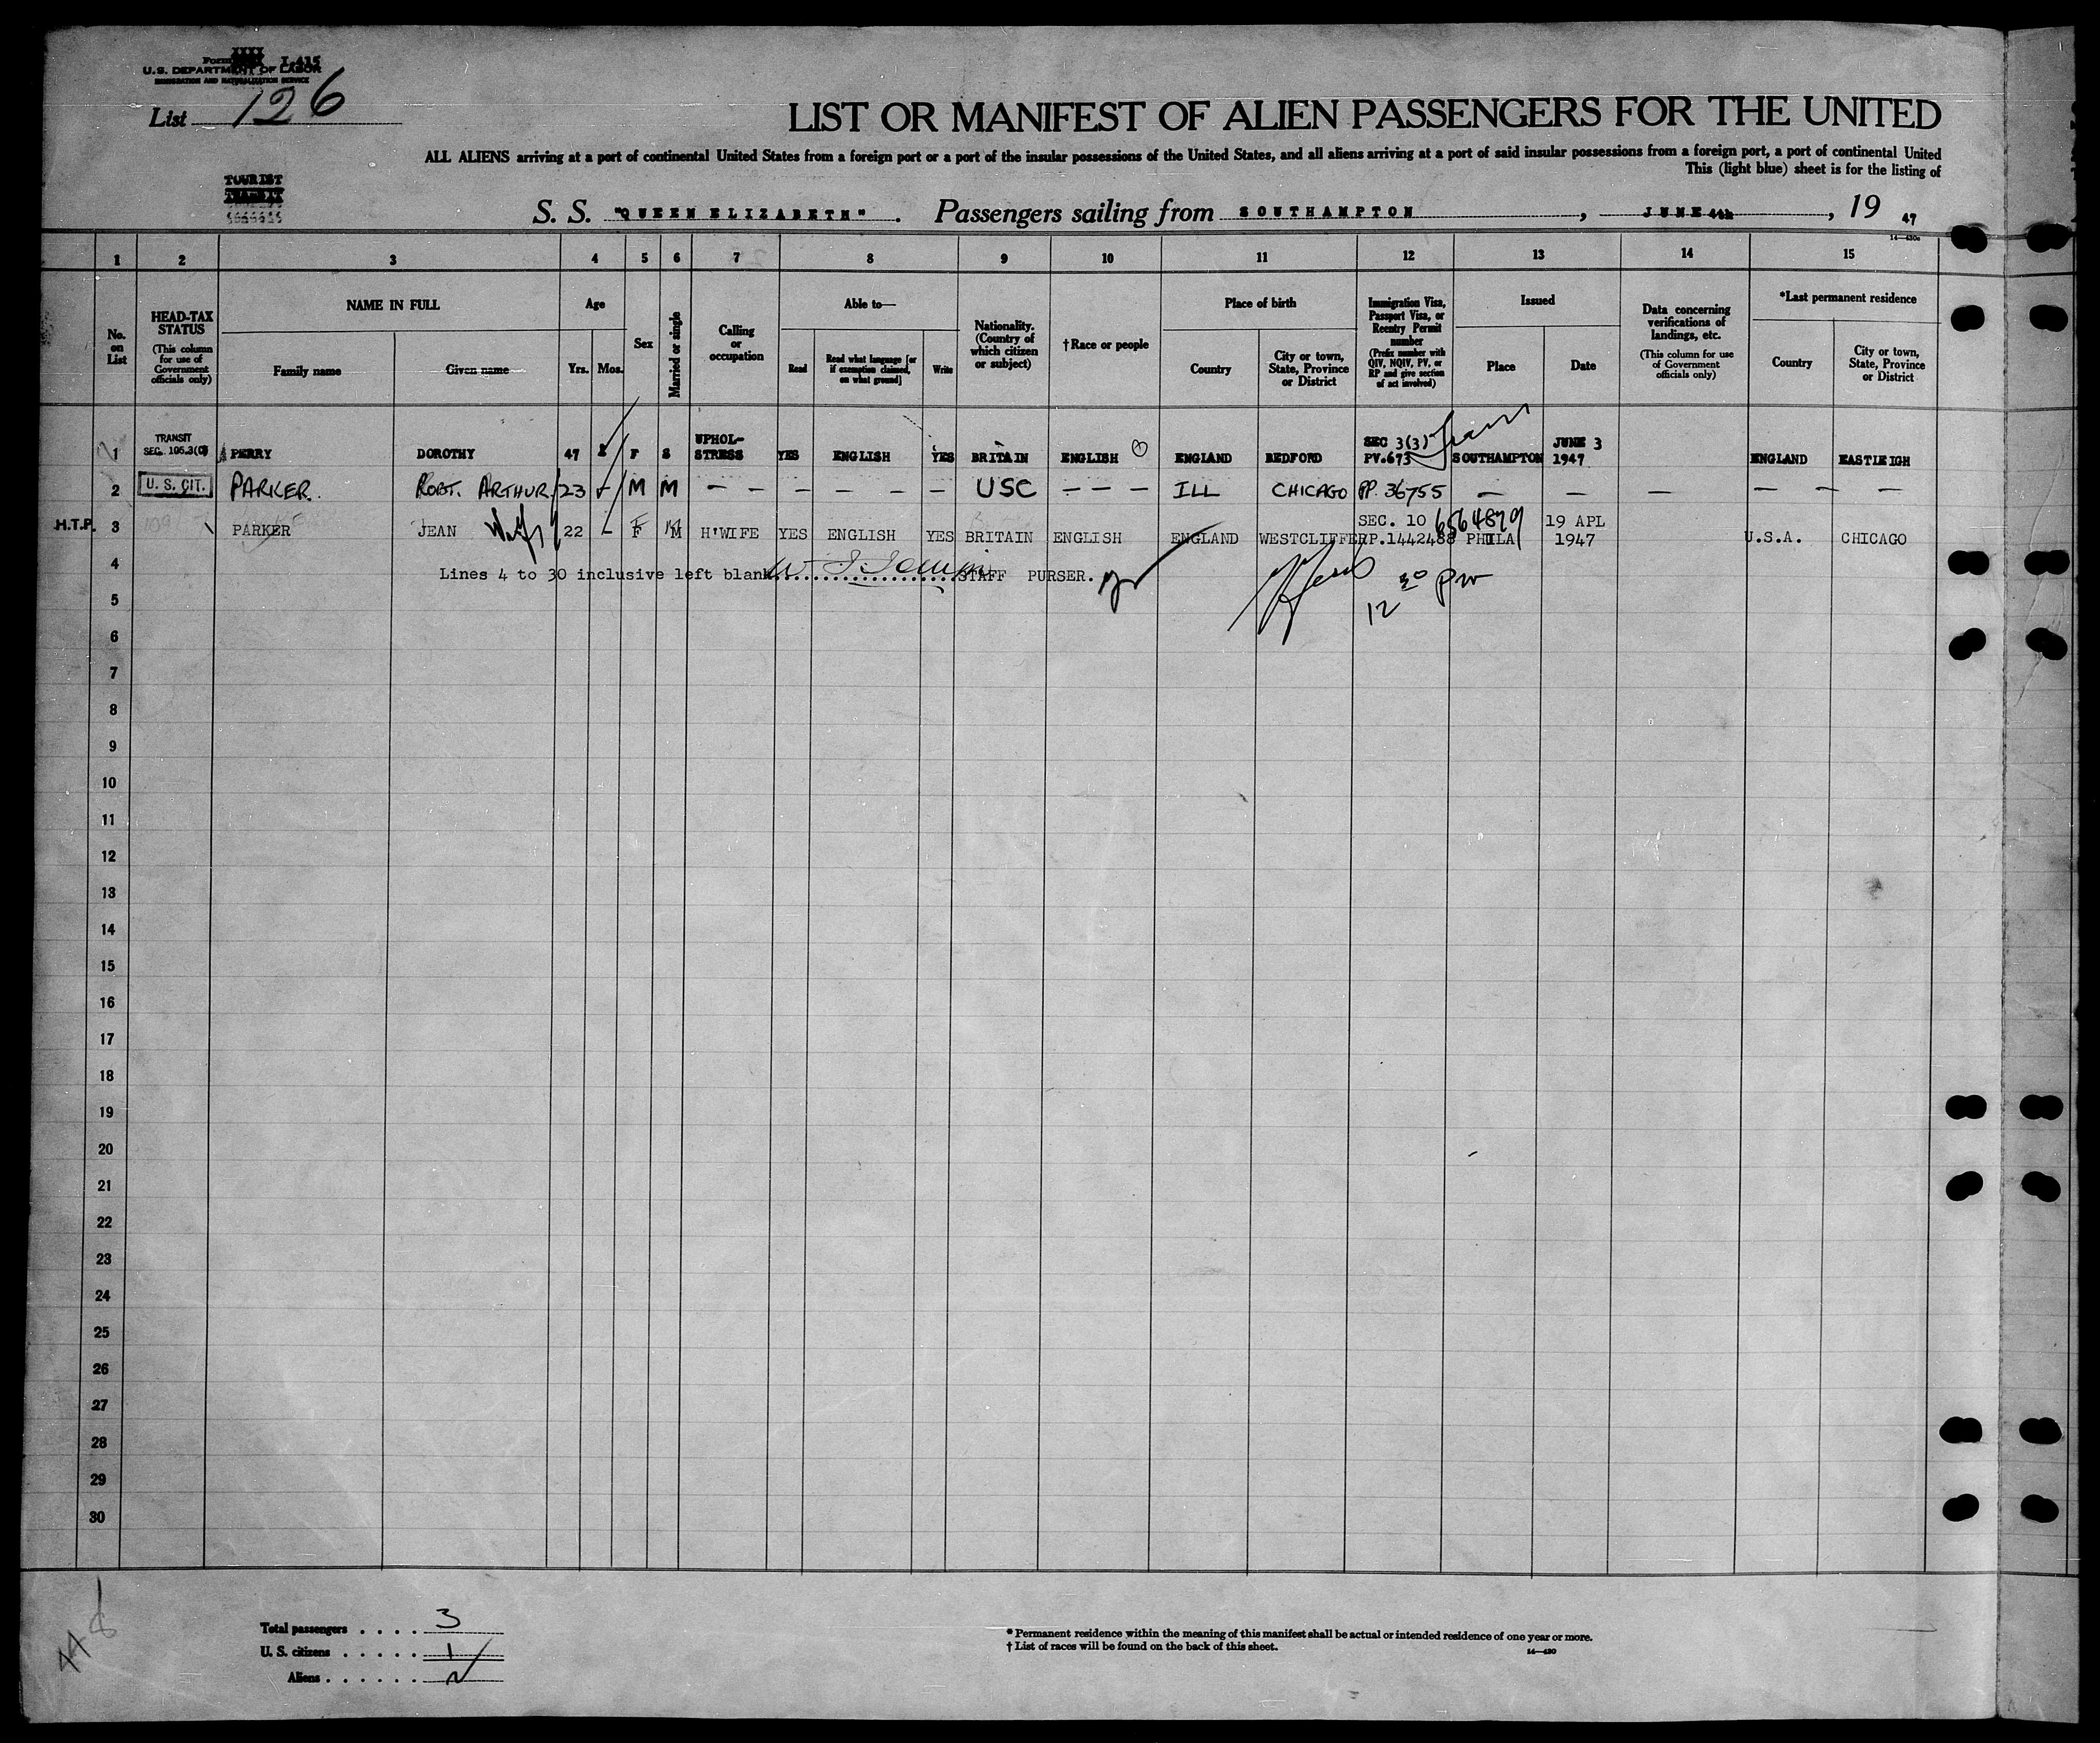 Form I-415
U.S. DEPARTMENT OF LABOR
IMMIGRATION AND NATURALIZATION SERVICE
List 126
LIST OR MANIFEST OF ALIEN PASSENGERS FOR THE UNITED
ALL ALIENS arriving at a port of continental United States from a foreign port or a port of the insular possessions of the United States, and all aliens arriving at a port of said insular possessions from a foreign port, a port of continental United
This (light blue) sheet is for the listing of
TOURIST
TRANSIT
S. S. "QUEEN ELIZABETH" . Passengers sailing from SOUTHAMPTON , JUNE 4th , 19 47
14—430a
1 2 3 4 5 6 7 8 9 10 11 12 13 14 15
No. on List
HEAD-TAX STATUS
(This column for use of Government officials only)
NAME IN FULL
Family name
Given name
Age
Yrs.
Mos.
Sex
Married or single
Calling or occupation
Able to—
Read
Read what language [or if exemption claimed, on what ground]
Write
Nationality. (Country of which citizen or subject)
†Race or people
Place of birth
Country
City or town, State, Province or District
Immigration Visa, Passport Visa, or Reentry Permit number
(Prefix number with QIV, NQIV, PV, or RP and give section of act involved)
Issued
Place
Date
Data concerning verifications of landings, etc.
(This column for use of Government officials only)
*Last permanent residence
Country
City or town, State, Province or District
TRANSIT UPHOL- SEC 3(3) JUNE 3
1 PERRY DOROTHY 47 F S STRESS YES ENGLISH YES BRITAIN ENGLISH ENGLAND BEDFORD PV.673 SOUTHAMPTON 1947 ENGLAND EASTLEIGH
2 U. S. CIT. PARKER. ROBT. ARTHUR. 23 - M M — — — — — — USC — — — ILL CHICAGO PP. 36755 — — — — — —
SEC. 10 6564879 19 APL
H.T.P. 3 PARKER JEAN Wife 22 - F M H'WIFE YES ENGLISH YES BRITAIN ENGLISH ENGLAND WESTCLIFFE RP.1442488 PHILA 1947 U.S.A. CHICAGO
4 Lines 4 to 30 inclusive left blank STAFF PURSER.
12 30 PM
5
6
7
8
9
10
11
12
13
14
15
16
17
18
19
20
21
22
23
24
25
26
27
28
29
30
Total passengers . . . . 3
U. S. citizens . . . . . 1
Aliens . . . . . . 2
* Permanent residence within the meaning of this manifest shall be actual or intended residence of one year or more.
† List of races will be found on the back of this sheet.
14—430